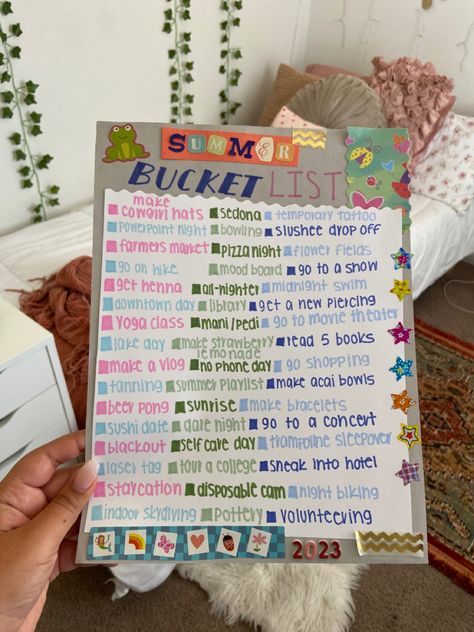 SUMMER
BUCKET LIST
make
cowgirl hats sedona temporary tattoo
powerpoint night bowling slushee drop off
farmers market pizza night flower fields
go on hike mood board go to a show
get henna all-nighter midnight swim
downtown day library get a new piercing
yoga class mani/pedi go to movie theater
lake day make strawberry read 5 books
lemonade
make a vlog no phone day go shopping
tanning summer playlist make acai bowls
beer pong sunrise make bracelets
sushi date date night go to a concert
blackout self care day trampoline sleepover
laser tag tour a college sneak into hotel
staycation disposable cam night biking
indoor skydiving pottery volunteering
2023